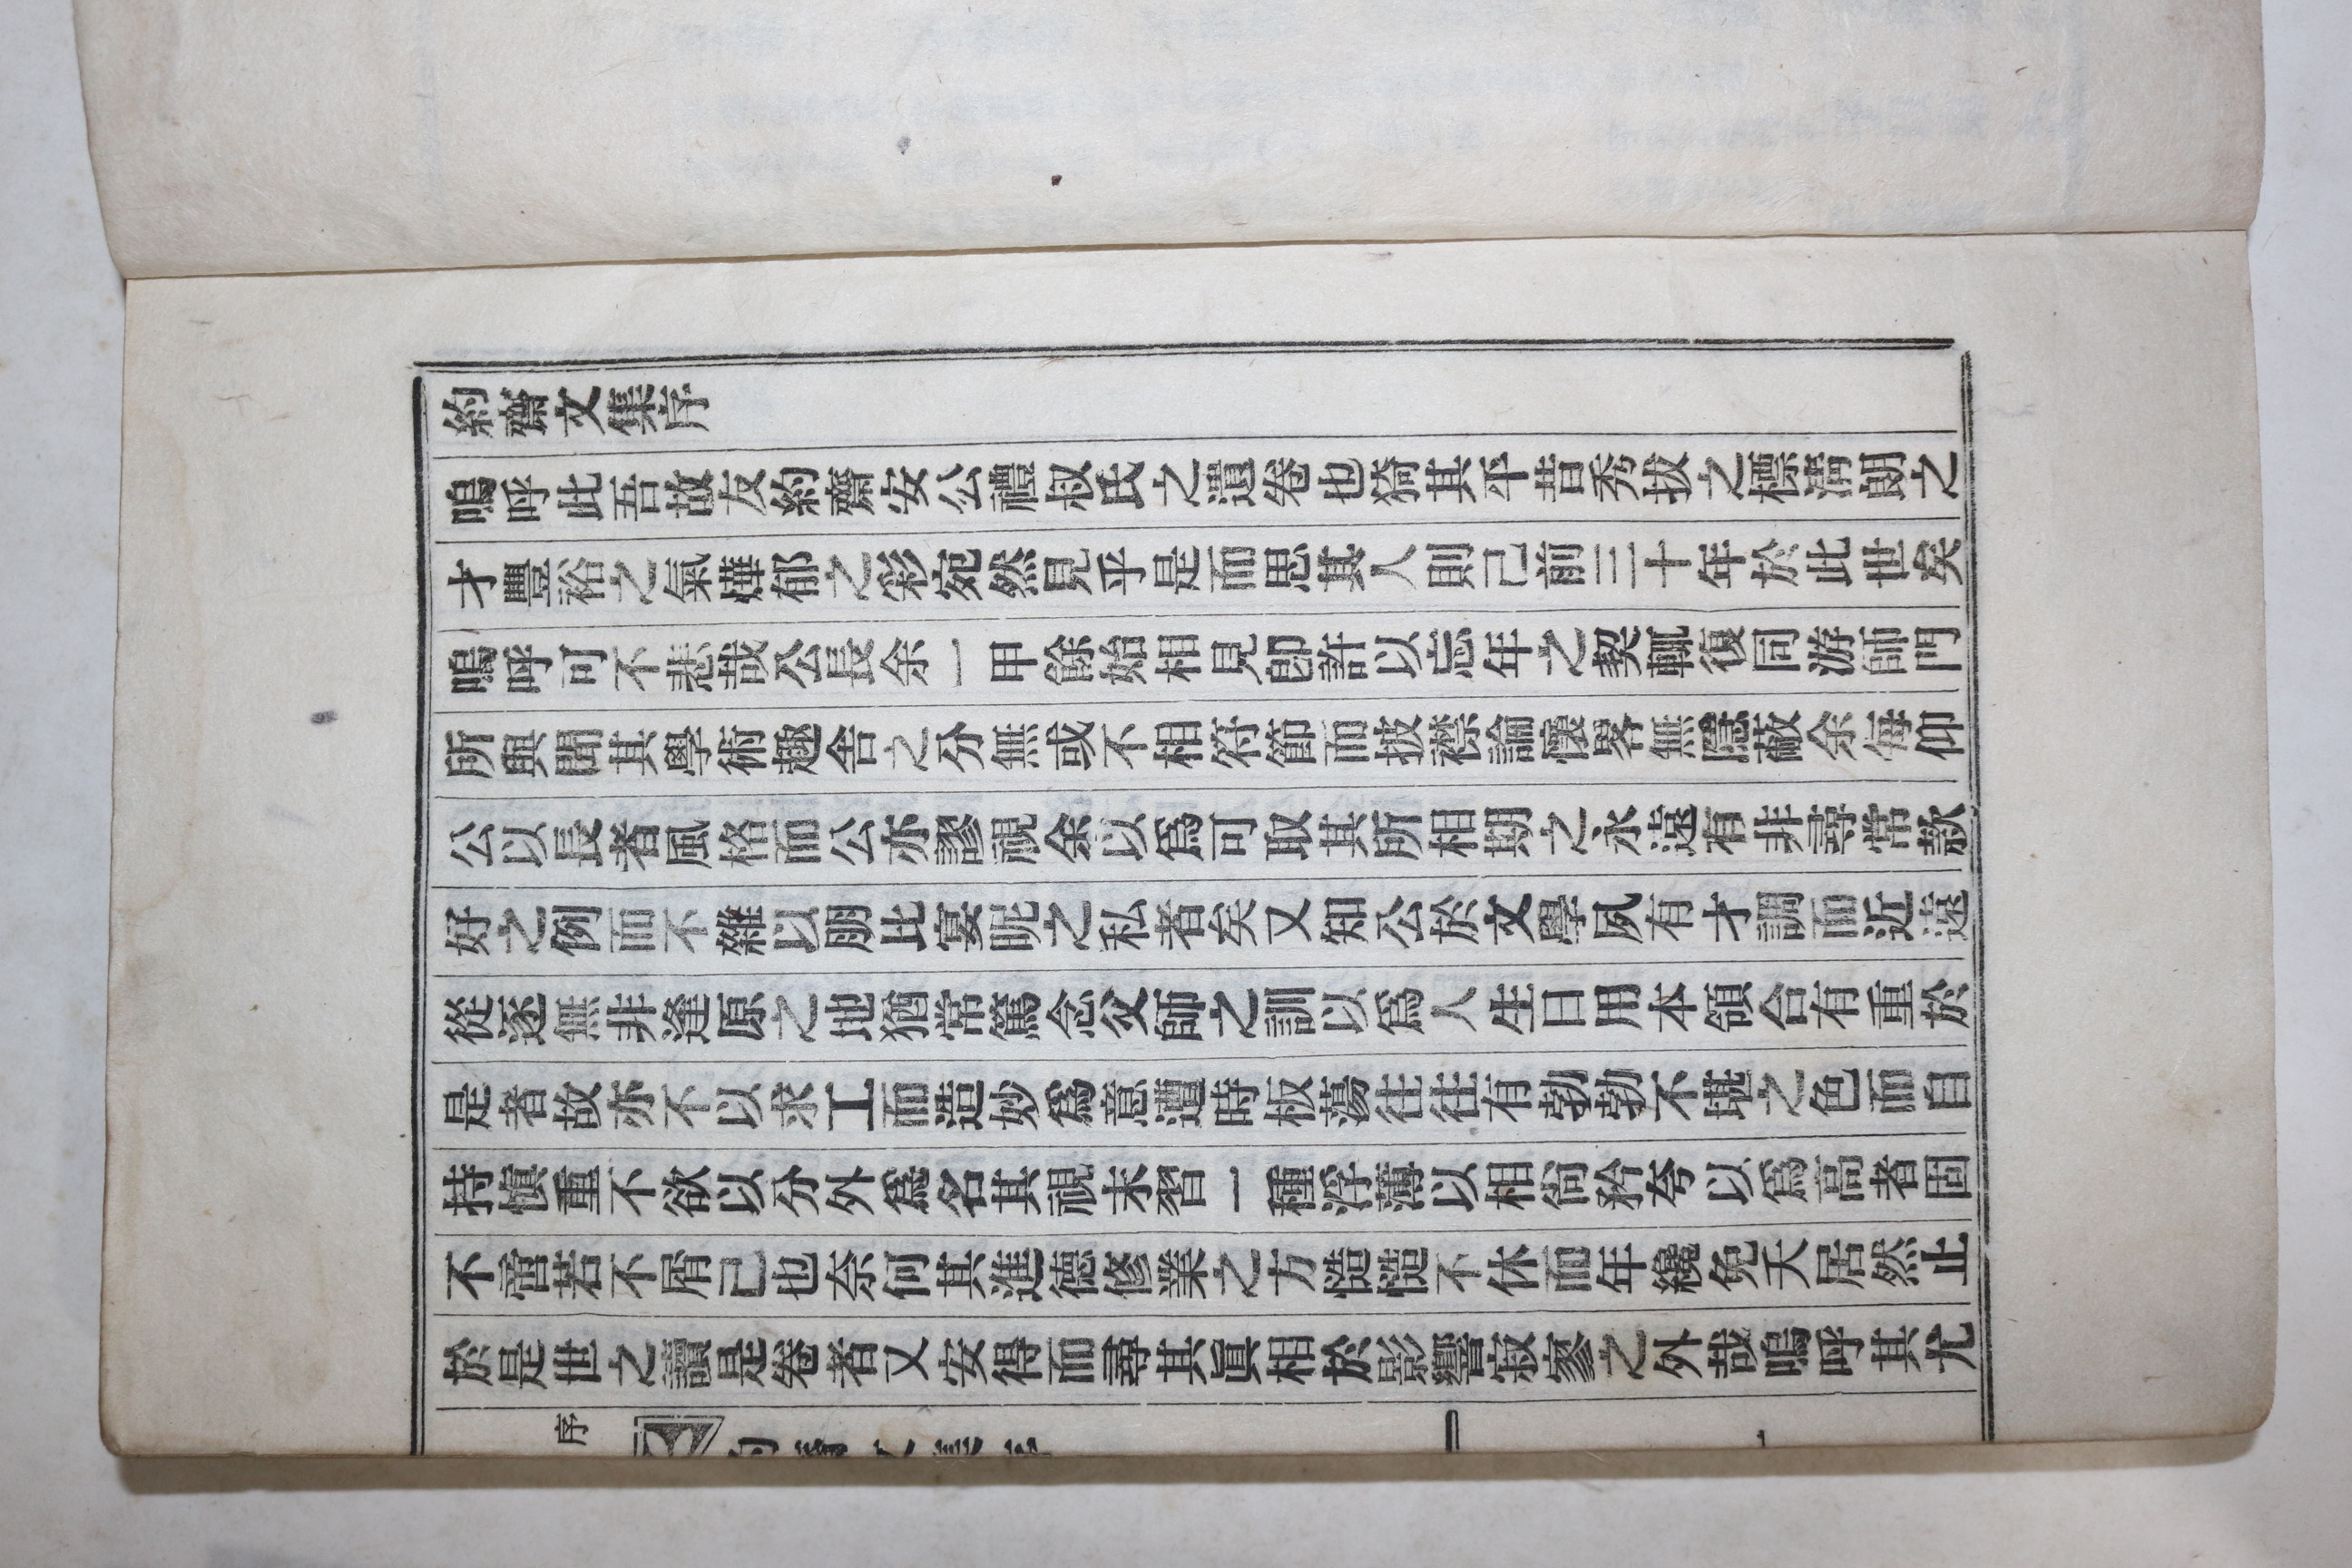 約齋文集序
嗚呼此吾故友約齋安公禮叔氏之遺卷也猗其平昔秀拔之標淸朗之
才豐裕之氣燁郁之彩宛然見乎是而思其人則己前三十年於此世矣
嗚呼可不悲哉公長余一甲餘始相見卽許以忘年之契輒復同游師門
所與聞其學術趣舍之分無或不相符節而披襟論懷畧無隱蔽余每仰
公以長者風格而公亦謬視余以爲可取其所相期之永遠有非尋常款
好之例而不雜以朋比宴昵之私者矣又知公於文學夙有才調而近遠
從逐無非逢原之地猶常篤念父師之訓以爲人生日用本領合有重於
是者故亦不以求工而造妙爲意遭時板蕩往往有勃勃不堪之色而自
持愼重不欲以分外爲名其視末習一種浮薄以相尙矜夸以爲高者固
不啻若不屑己也奈何其進德修業之方慥慥不休而年纔免夭居然止
於是世之讀是卷者又安得而尋其眞相於影響寂寥之外哉嗚呼其尤
序
約齋文集序
一